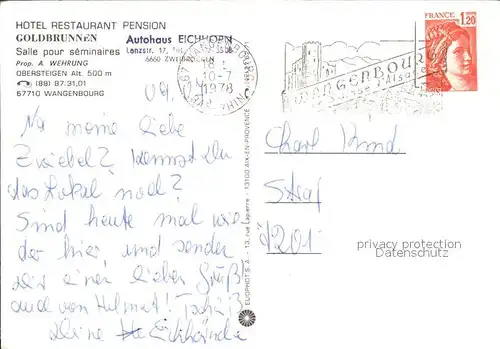 HOTEL RESTAURANT PENSION
GOLDBRUNNEN
Salle pour séminaires
Prop. A WEHRUNG
OBERSTEIGEN Alt. 500 m
(88) 87.31.01
67710 WANGENBOURG
Autohaus EICHHORN
Lenzstr. 17, Tel.
6660 ZWEIBRÜCKEN
10-7
1978
WANGENBOURG
FRANCE 1,20
Na meine liebe
Zwiebel? Kennst Du
das Lokal noch?
Sind heute mal wie
der hier, und senden
Dir einen lieben Gruß!
auch von Helmut! Tschüß
Deine
EUROPHOT S.A. - 13, rue Lapierre - 13100 AIX-EN-PROVENCE
privacy protection
Datenschutz